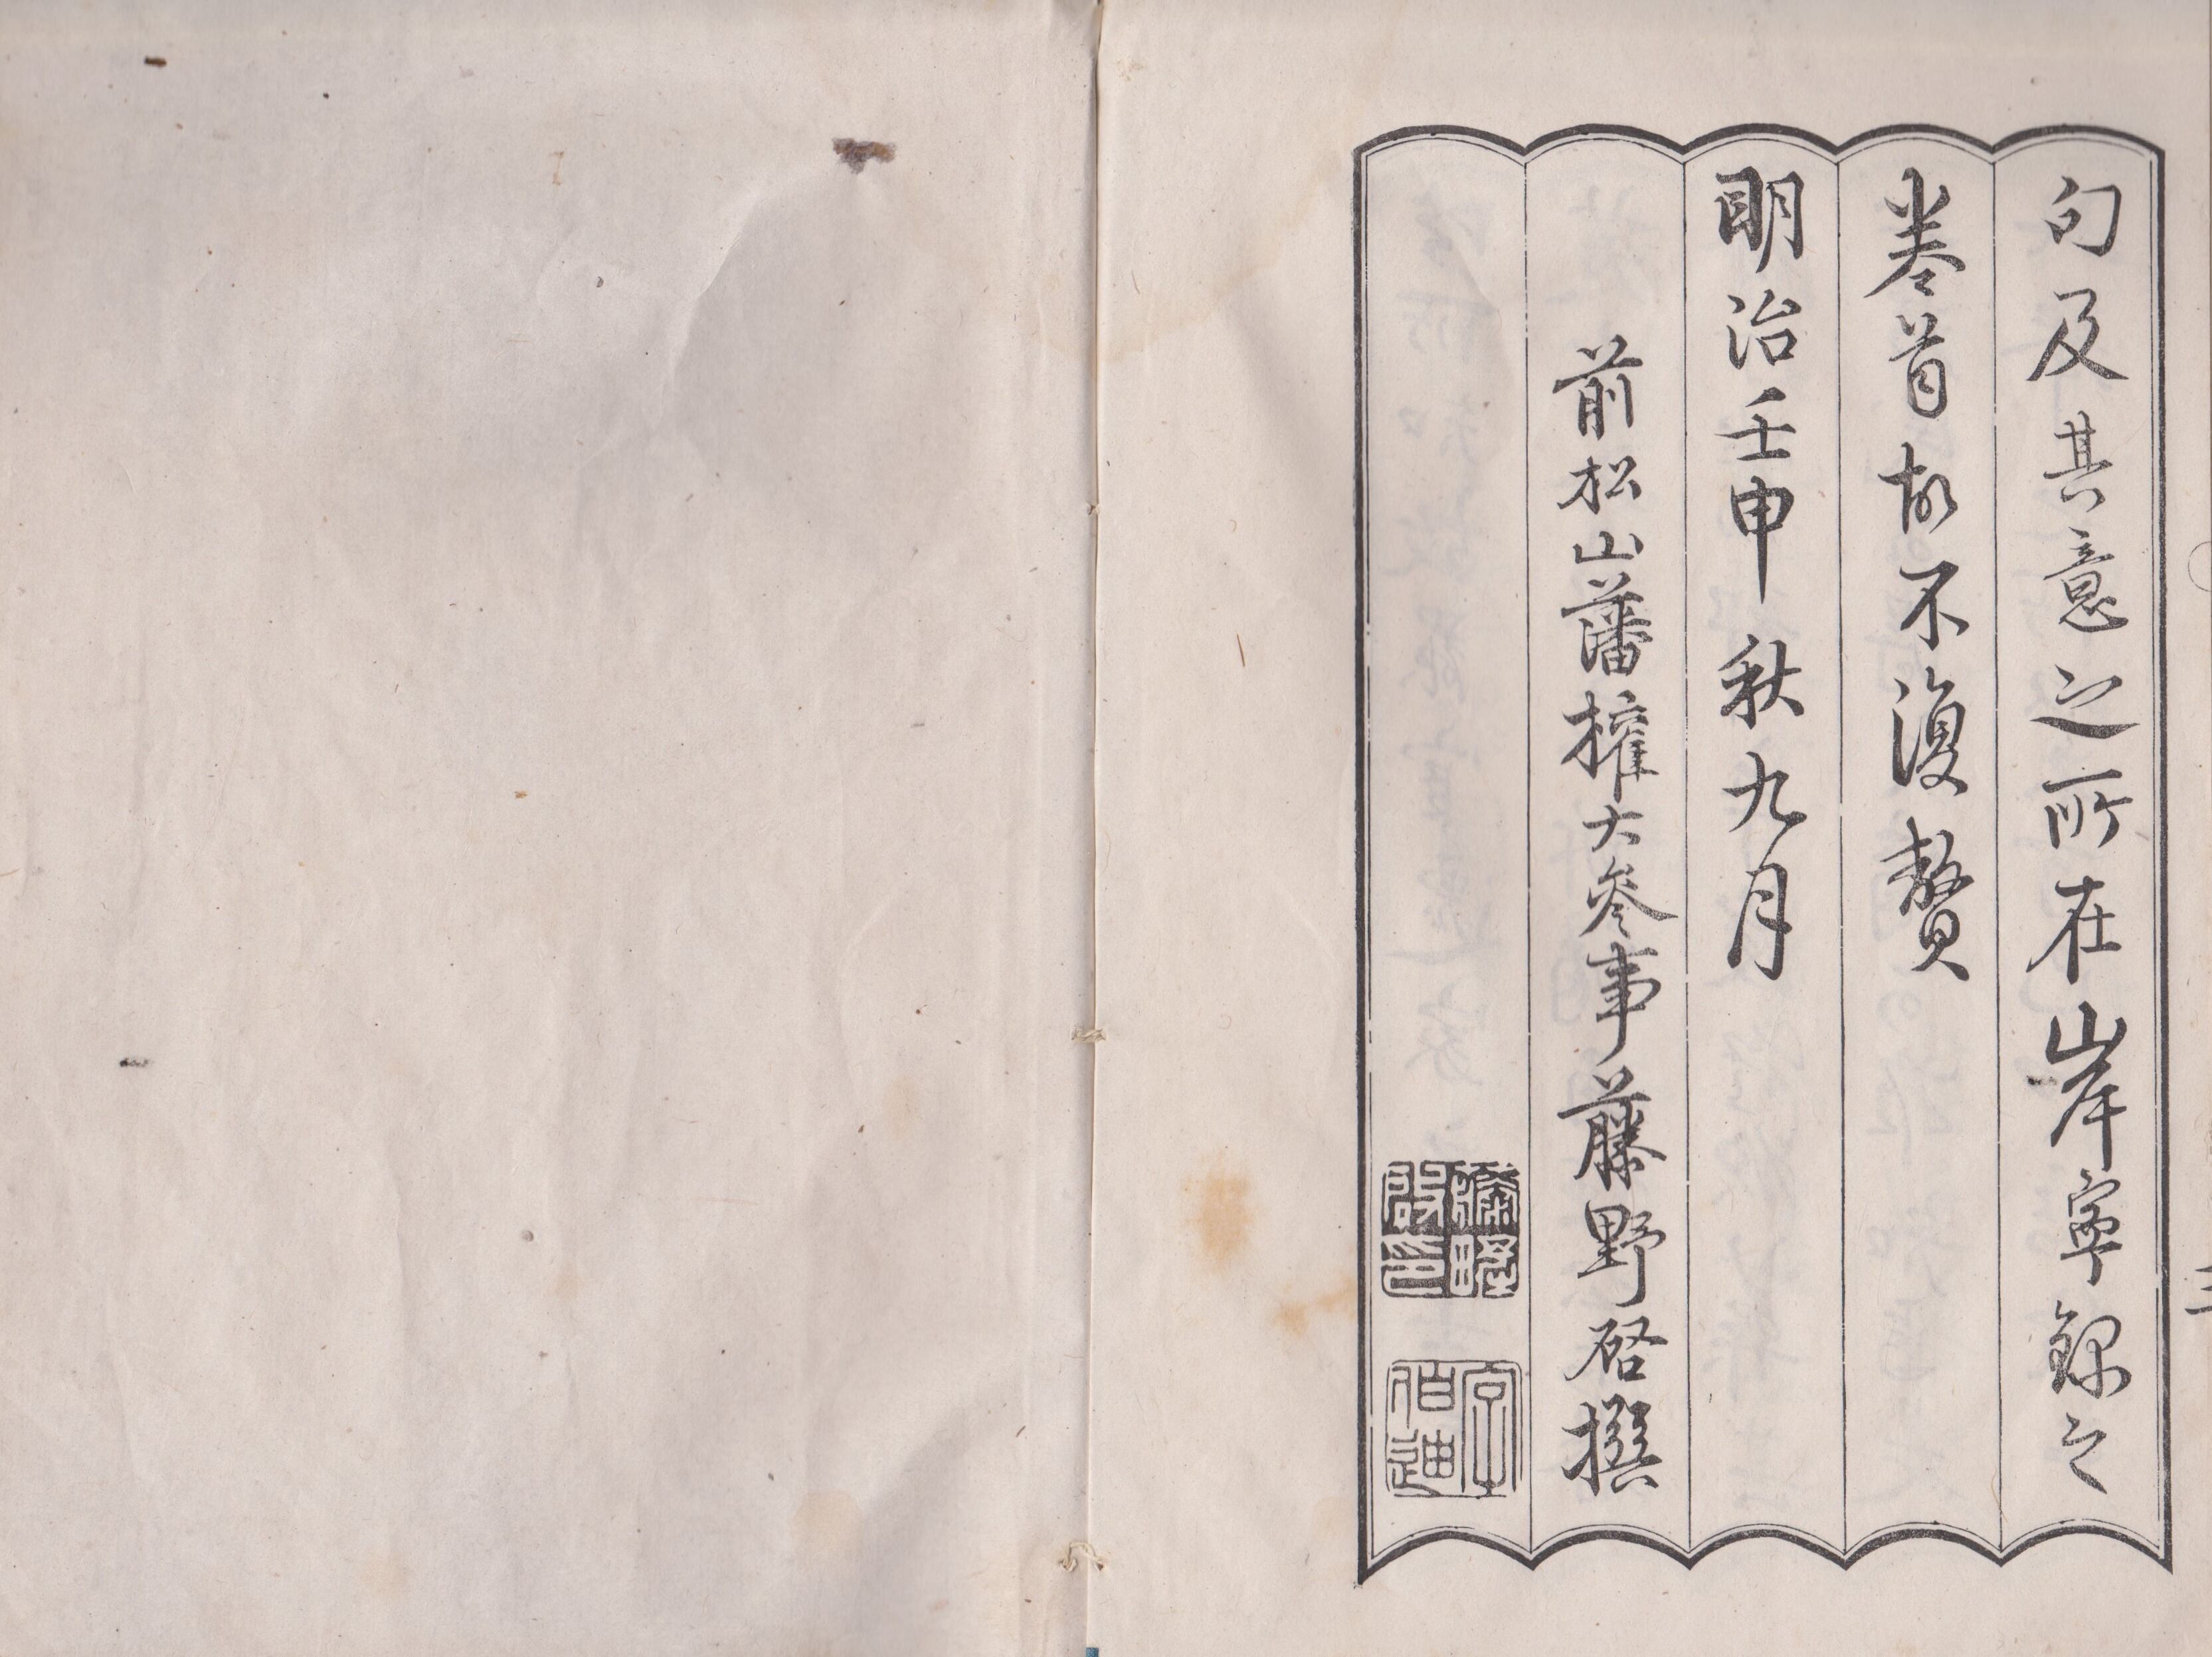 句及其意之所在岸寧錄之
卷首故不復贅
明治壬申秋九月
前松山藩權大參事藤野啓撰
藤野啓印
字伯迪